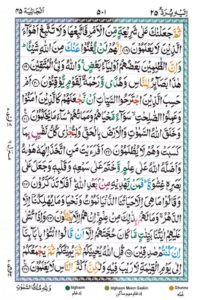 اِلَيْهِ يُرَدُّ ٢٥
٥٠١
الجاثية ٤٥
ثُمَّ جَعَلْنٰكَ عَلٰى شَرِيْعَةٍ مِّنَ الْاَمْرِ فَاتَّبِعْهَا وَلَا تَتَّبِعْ اَهْوَآءَ
الَّذِيْنَ لَا يَعْلَمُوْنَ اِنَّهُمْ لَنْ يُّغْنُوْا عَنْكَ مِنَ اللّٰهِ شَيْـًٔا
وَاِنَّ الظّٰلِمِيْنَ بَعْضُهُمْ اَوْلِيَآءُ بَعْضٍ وَاللّٰهُ وَلِيُّ الْمُتَّقِيْنَ
هٰذَا بَصَآئِرُ لِلنَّاسِ وَهُدًى وَّرَحْمَةٌ لِّقَوْمٍ يُّوْقِنُوْنَ اَمْ
حَسِبَ الَّذِيْنَ اجْتَرَحُوا السَّيِّاٰتِ اَنْ نَّجْعَلَهُمْ كَالَّذِيْنَ اٰمَنُوْا
وَعَمِلُوا الصّٰلِحٰتِ سَوَآءً مَّحْيَاهُمْ وَمَمَاتُهُمْ سَآءَ مَا يَحْكُمُوْنَ
وَخَلَقَ اللّٰهُ السَّمٰوٰتِ وَالْاَرْضَ بِالْحَقِّ وَلِتُجْزٰى كُلُّ نَفْسٍۭ بِمَا
كَسَبَتْ وَهُمْ لَا يُظْلَمُوْنَ اَفَرَءَيْتَ مَنِ اتَّخَذَ اِلٰهَهٗ هَوٰىهُ
وَاَضَلَّهُ اللّٰهُ عَلٰى عِلْمٍ وَّخَتَمَ عَلٰى سَمْعِهٖ وَقَلْبِهٖ وَجَعَلَ عَلٰى
بَصَرِهٖ غِشٰوَةً فَمَنْ يَّهْدِيْهِ مِنْۢ بَعْدِ اللّٰهِ اَفَلَا تَذَكَّرُوْنَ
وَقَالُوْا مَا هِيَ اِلَّا حَيَاتُنَا الدُّنْيَا نَمُوْتُ وَنَحْيَا وَمَا يُهْلِكُنَآ اِلَّا
الدَّهْرُ وَمَا لَهُمْ بِذٰلِكَ مِنْ عِلْمٍ اِنْ هُمْ اِلَّا يَظُنُّوْنَ وَاِذَا تُتْلٰى
عَلَيْهِمْ اٰيٰتُنَا بَيِّنٰتٍ مَّا كَانَ حُجَّتَهُمْ اِلَّآ اَنْ قَالُوا ائْتُوْا بِاٰبَآئِنَآ
اِنْ كُنْتُمْ صٰدِقِيْنَ قُلِ اللّٰهُ يُحْيِيْكُمْ ثُمَّ يُمِيْتُكُمْ ثُمَّ يَجْمَعُكُمْ
اِلٰى يَوْمِ الْقِيٰمَةِ لَا رَيْبَ فِيْهِ وَلٰكِنَّ اَكْثَرَ النَّاسِ لَا يَعْلَمُوْنَ